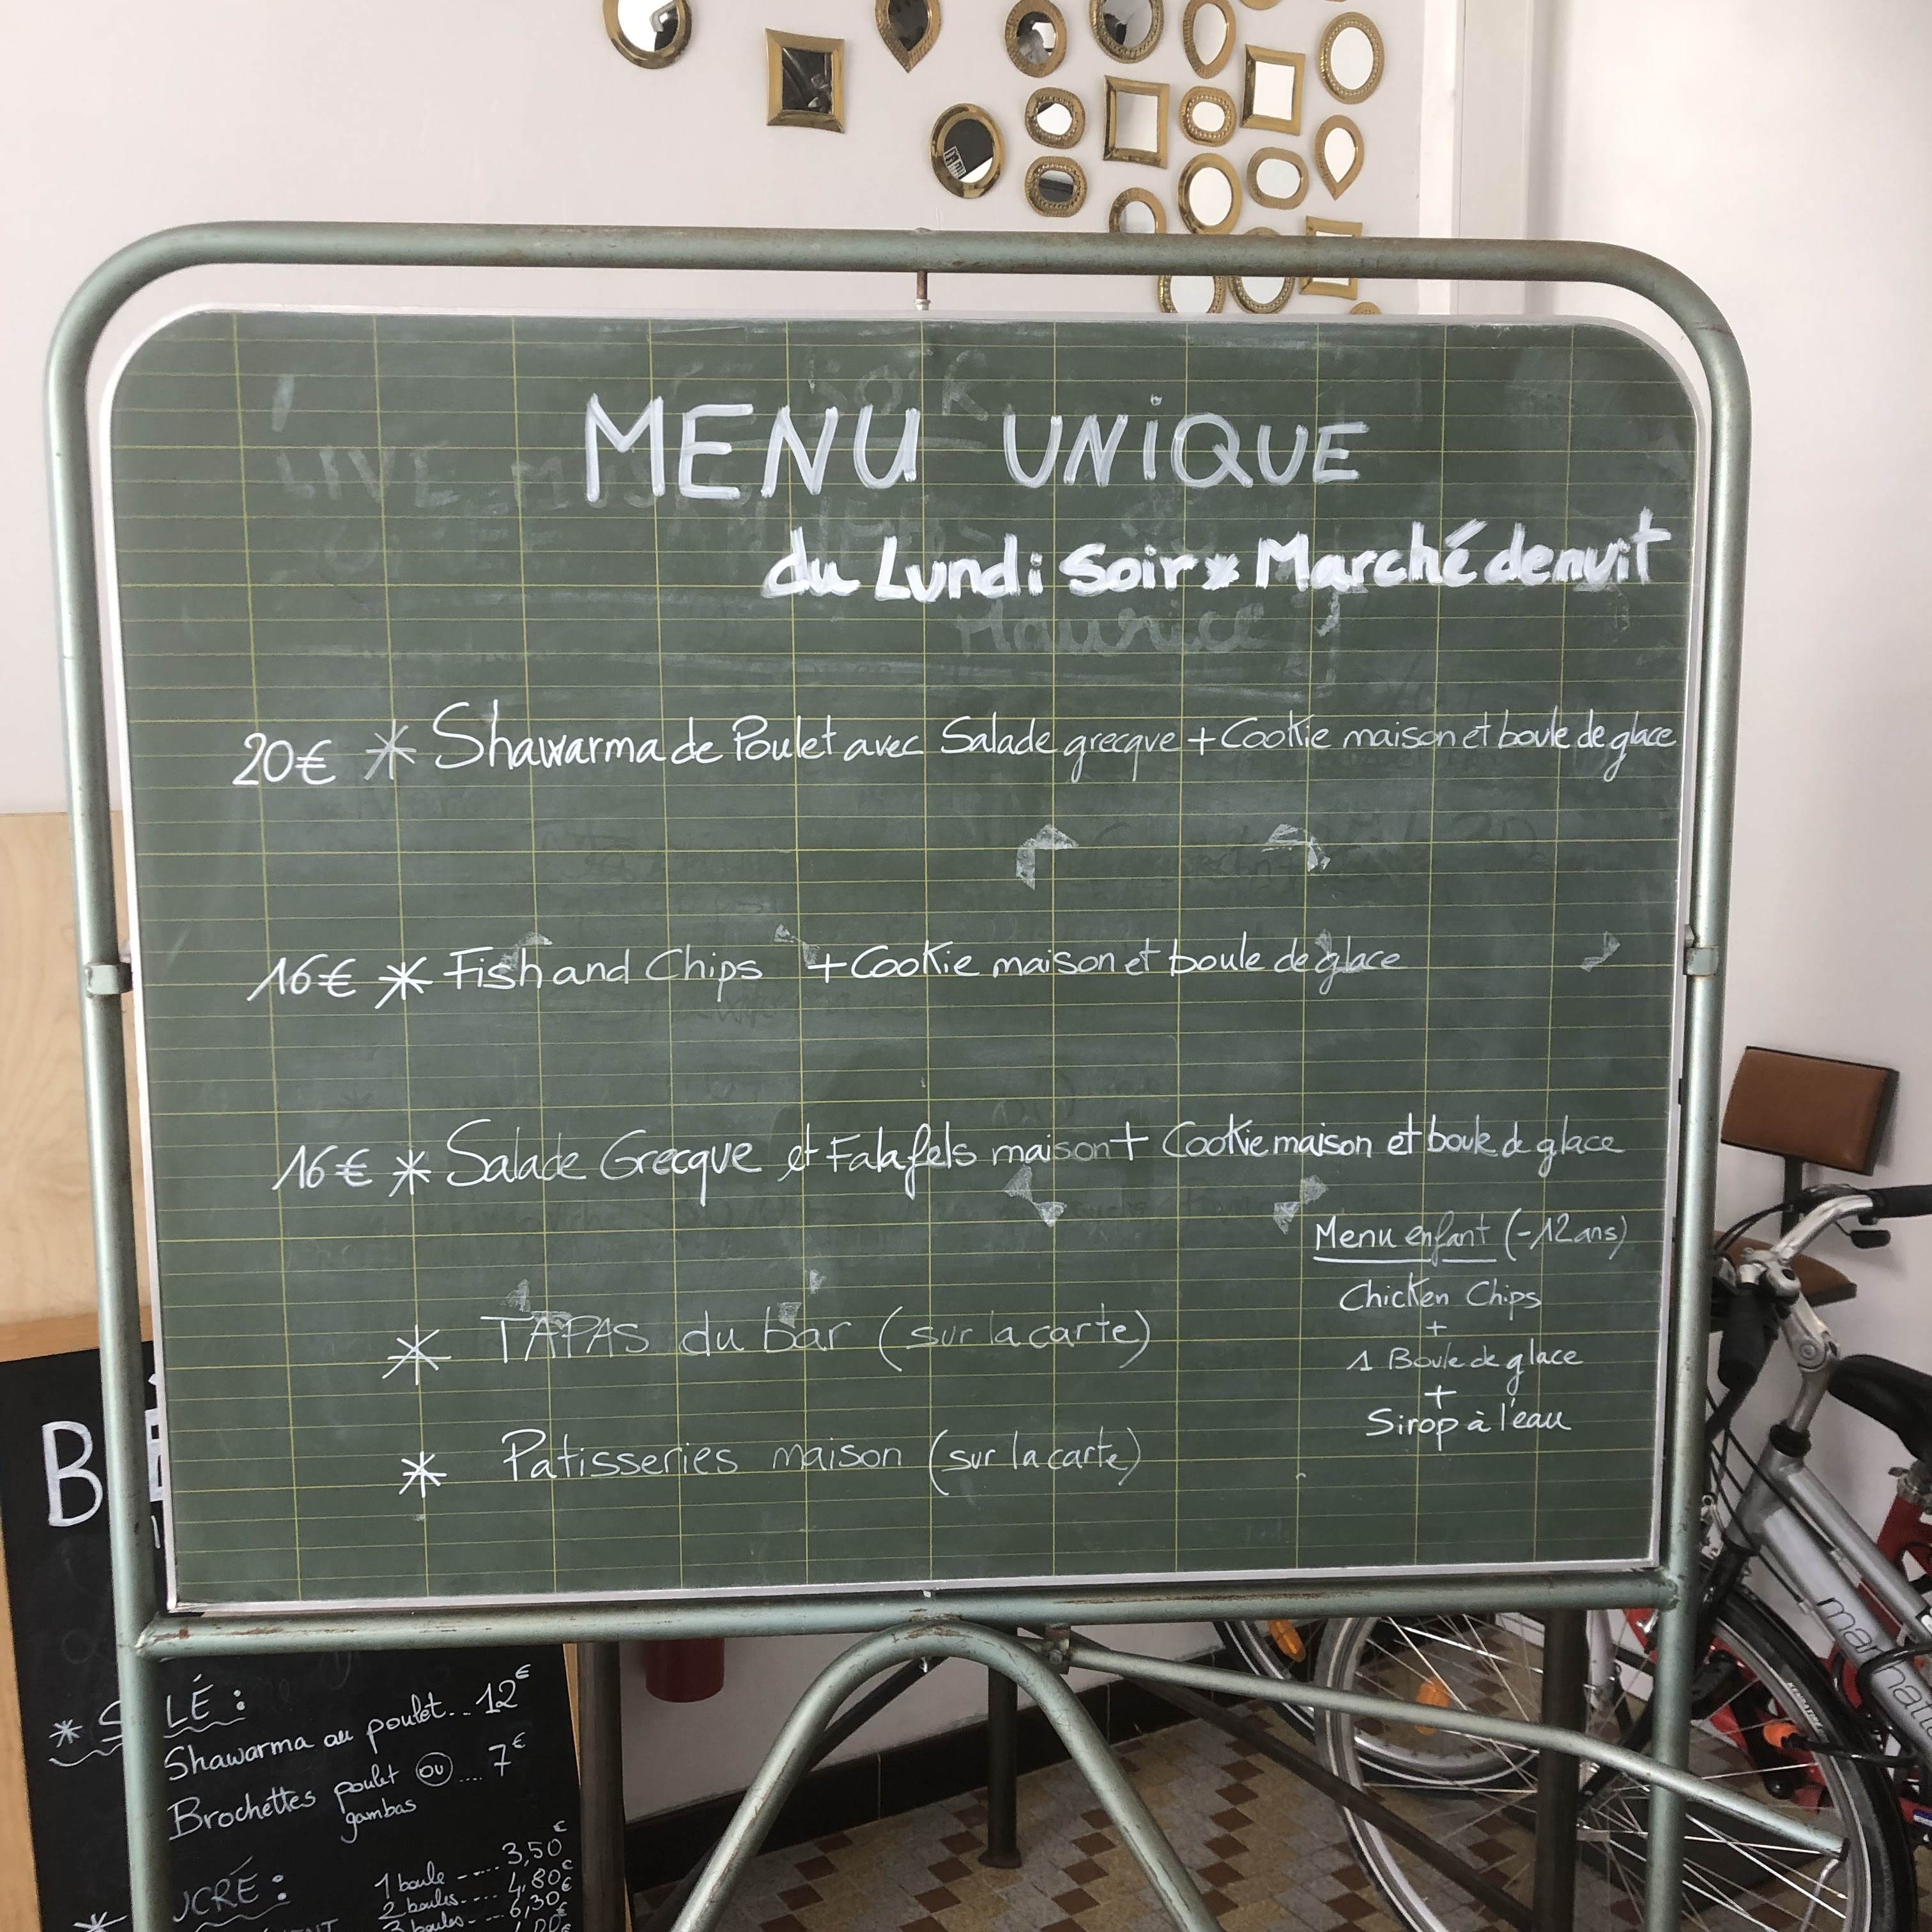 MENU UNIQUE
du Lundi Soir * Marché de nuit
Maurice
20€ * Shawarma de Poulet avec Salade grecque + Cookie maison et boule de glace
16€ * Fish and Chips + Cookie maison et boule de glace
16€ * Salade Grecque et Falafels maison + Cookie maison et boule de glace
* TAPAS du bar (sur la carte)
* Patisseries maison (sur la carte)
Menu enfant (-12 ans)
Chicken Chips
+
1 Boule de glace
+
Sirop à l'eau
Shawarma au poulet... 12€
Brochettes poulet ou .... 7€
gambas
1 boule ----... 3,50€
2 boules.---- 4,80€
3 boules.--- 6,30€